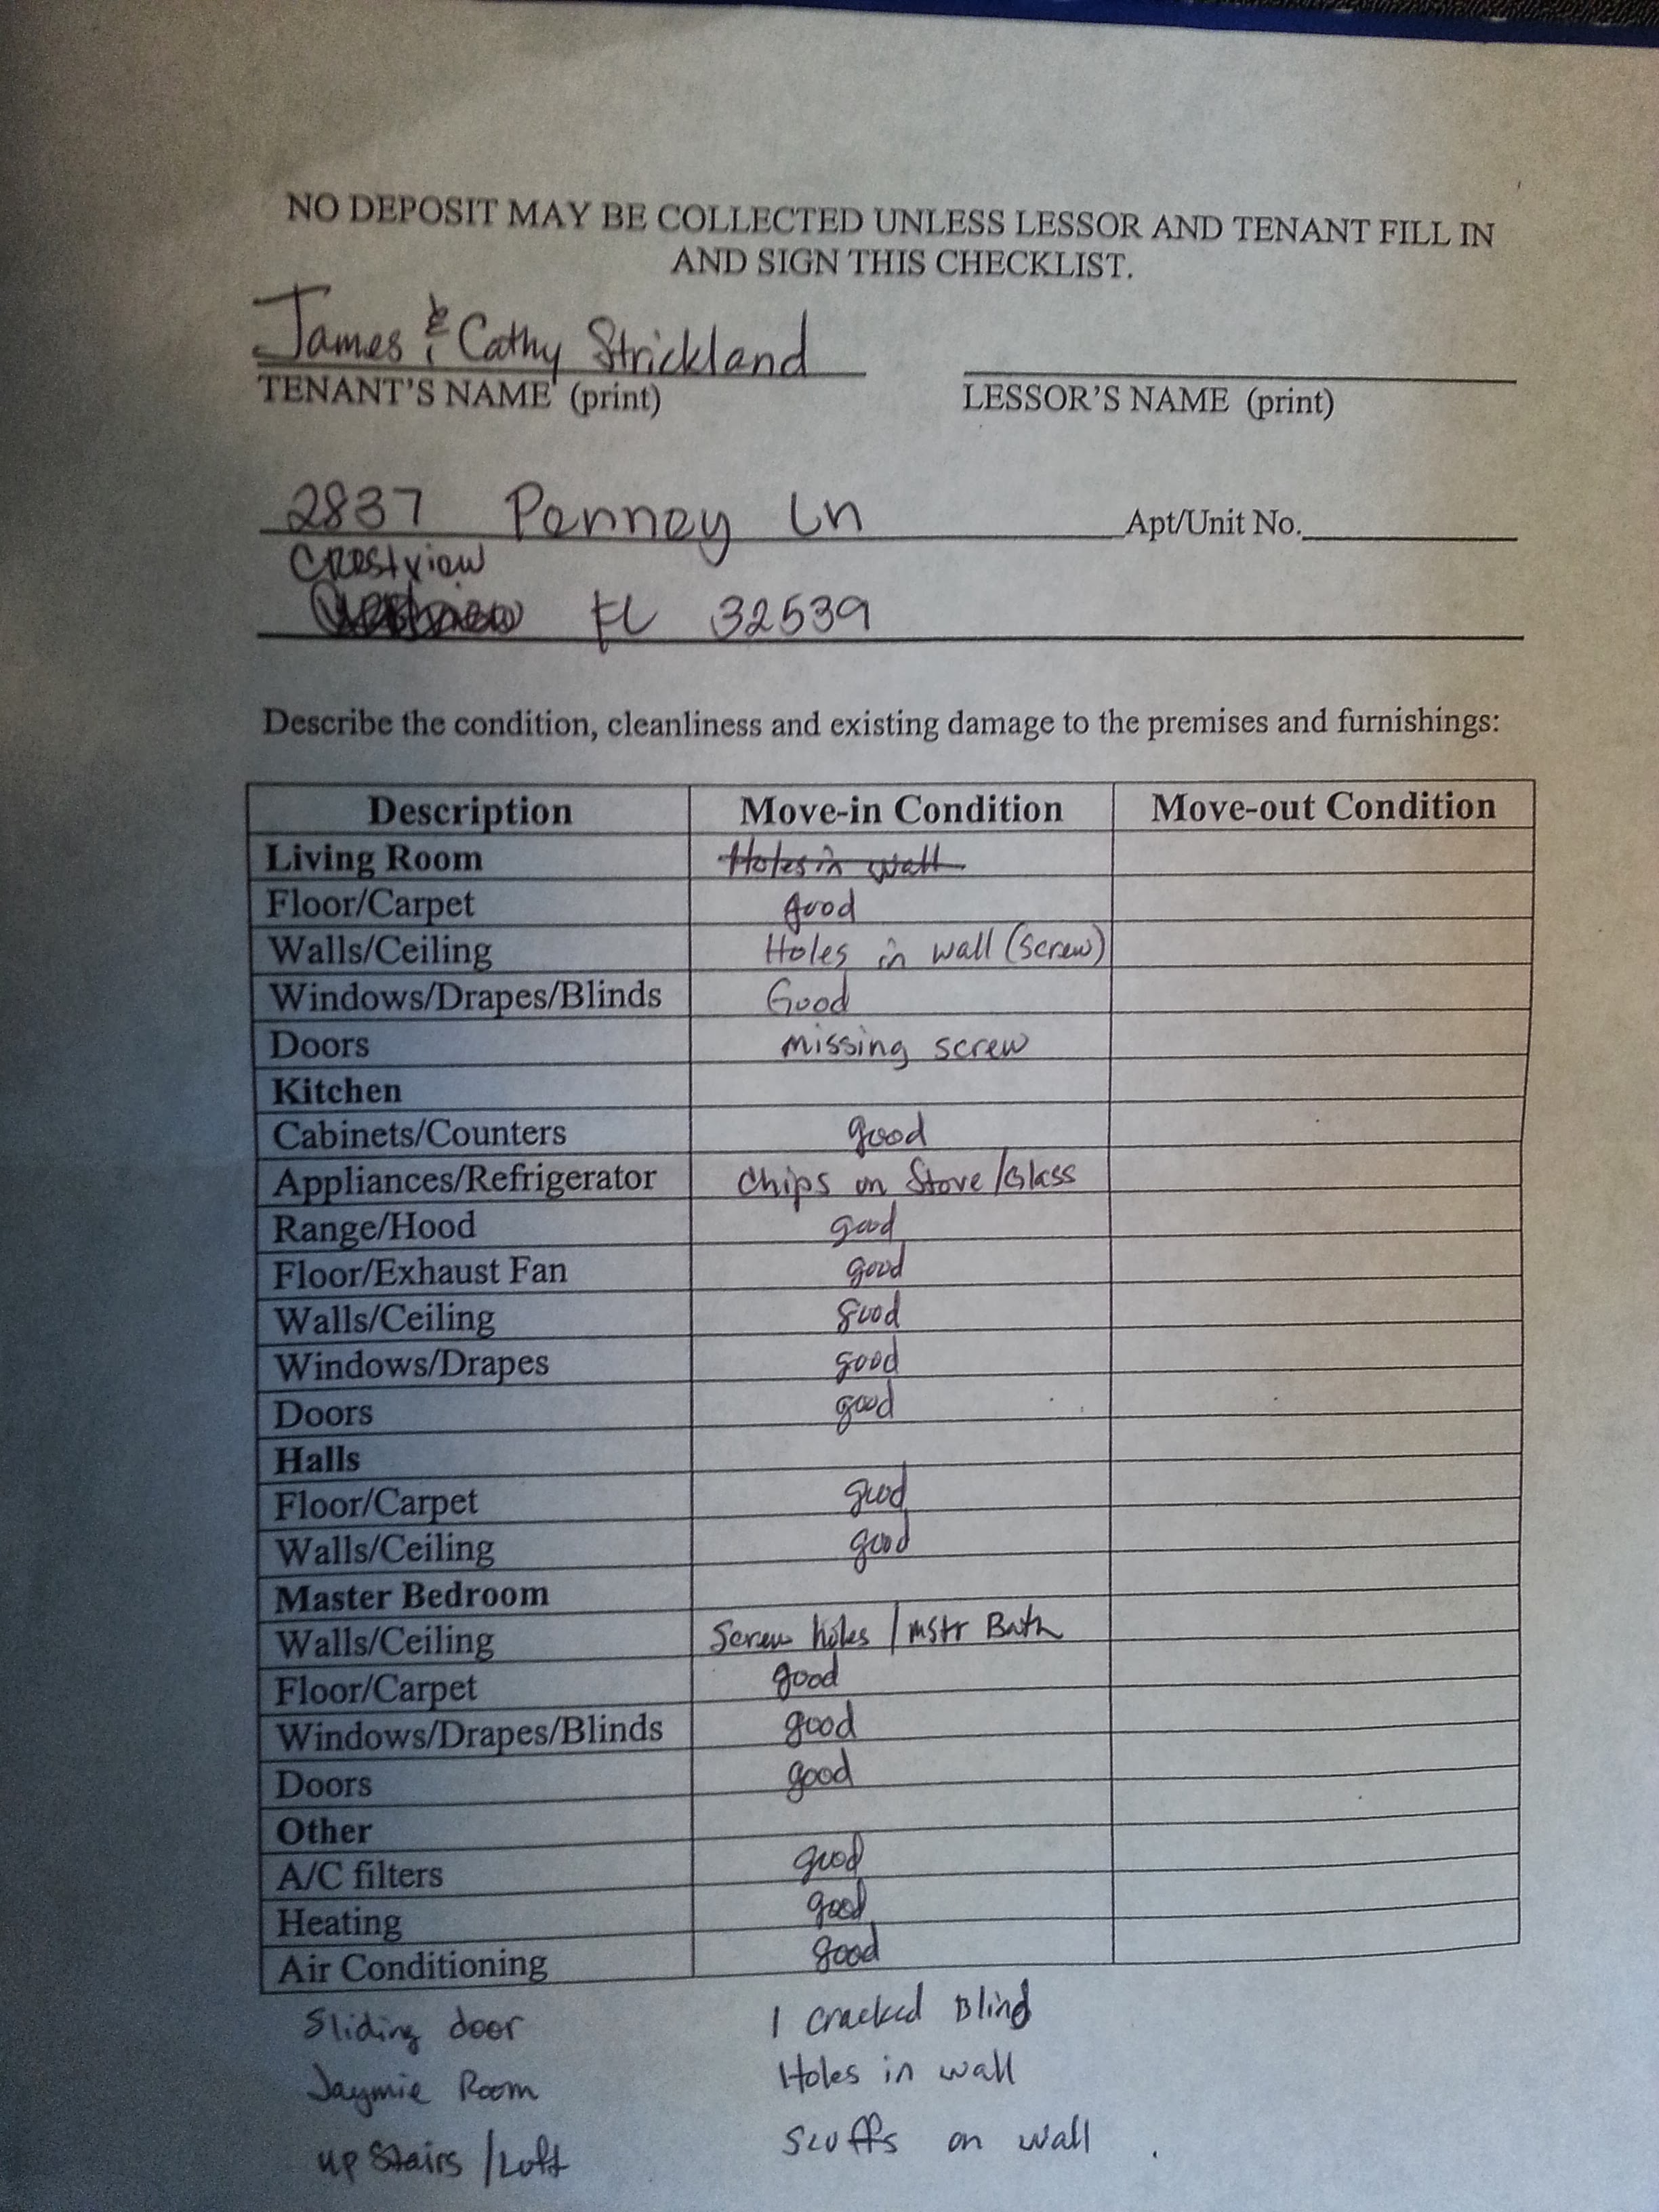 NO DEPOSIT MAY BE COLLECTED UNLESS LESSOR AND TENANT FILL IN
AND SIGN THIS CHECKLIST.
James & Cathy Strickland
TENANT'S NAME (print) LESSOR'S NAME (print)
2837 Penney Ln Apt/Unit No.
Crestview
FL 32539
Describe the condition, cleanliness and existing damage to the premises and furnishings:
Description Move-in Condition Move-out Condition
Living Room Holes in wall
Floor/Carpet good
Walls/Ceiling Holes in wall (screw)
Windows/Drapes/Blinds Good
Doors missing screw
Kitchen
Cabinets/Counters good
Appliances/Refrigerator Chips on Stove/Glass
Range/Hood good
Floor/Exhaust Fan good
Walls/Ceiling good
Windows/Drapes good
Doors good
Halls
Floor/Carpet good
Walls/Ceiling good
Master Bedroom
Walls/Ceiling Screw holes / mstr Bath
Floor/Carpet good
Windows/Drapes/Blinds good
Doors good
Other
A/C filters good
Heating good
Air Conditioning good
Sliding door 1 cracked Blind
Jaymie Room Holes in wall
up Stairs / Loft Scuffs on wall